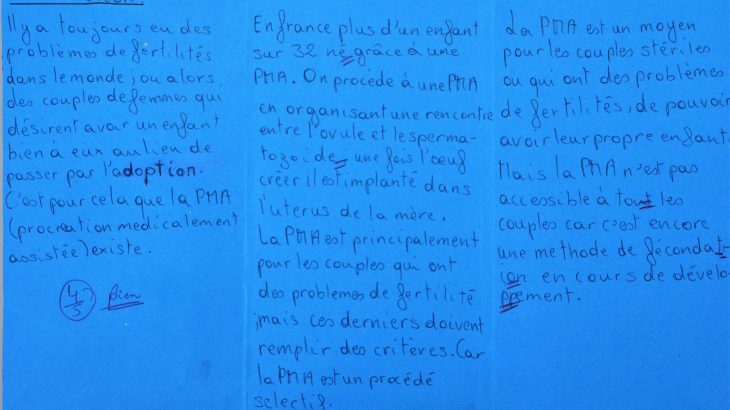 Il y a toujours eu des
problèmes de fertilités
dans le monde ; ou alors
des couples de femmes qui
désirent avoir un enfant
bien à eux au lieu de
passer par l'adoption.
C'est pour cela que la PMA
(procréation medicalement
assistée) existe.
4/5 Bien
En france plus d'un enfant
sur 32 né grâce à une
PMA. On procède à une PMA
en organisant une rencontre
entre l'ovule et le sperma-
tozoide, une fois l'oeuf
créer il est implanté dans
l'uterus de la mère.
La PMA est principalement
pour les couples qui ont
des problèmes de fertilité
,mais ces derniers doivent
remplir des critères. Car
la PMA est un procédé
selectif.
La PMA est un moyen
pour les couples stériles
ou qui ont des problèmes
de fertilités, de pouvoir
avoir leur propre enfant.
Mais la PMA n'est pas
accessible à tout les
couples car c'est encore
une methode de fécondati-
ion en cours de dévelo-
ppement.